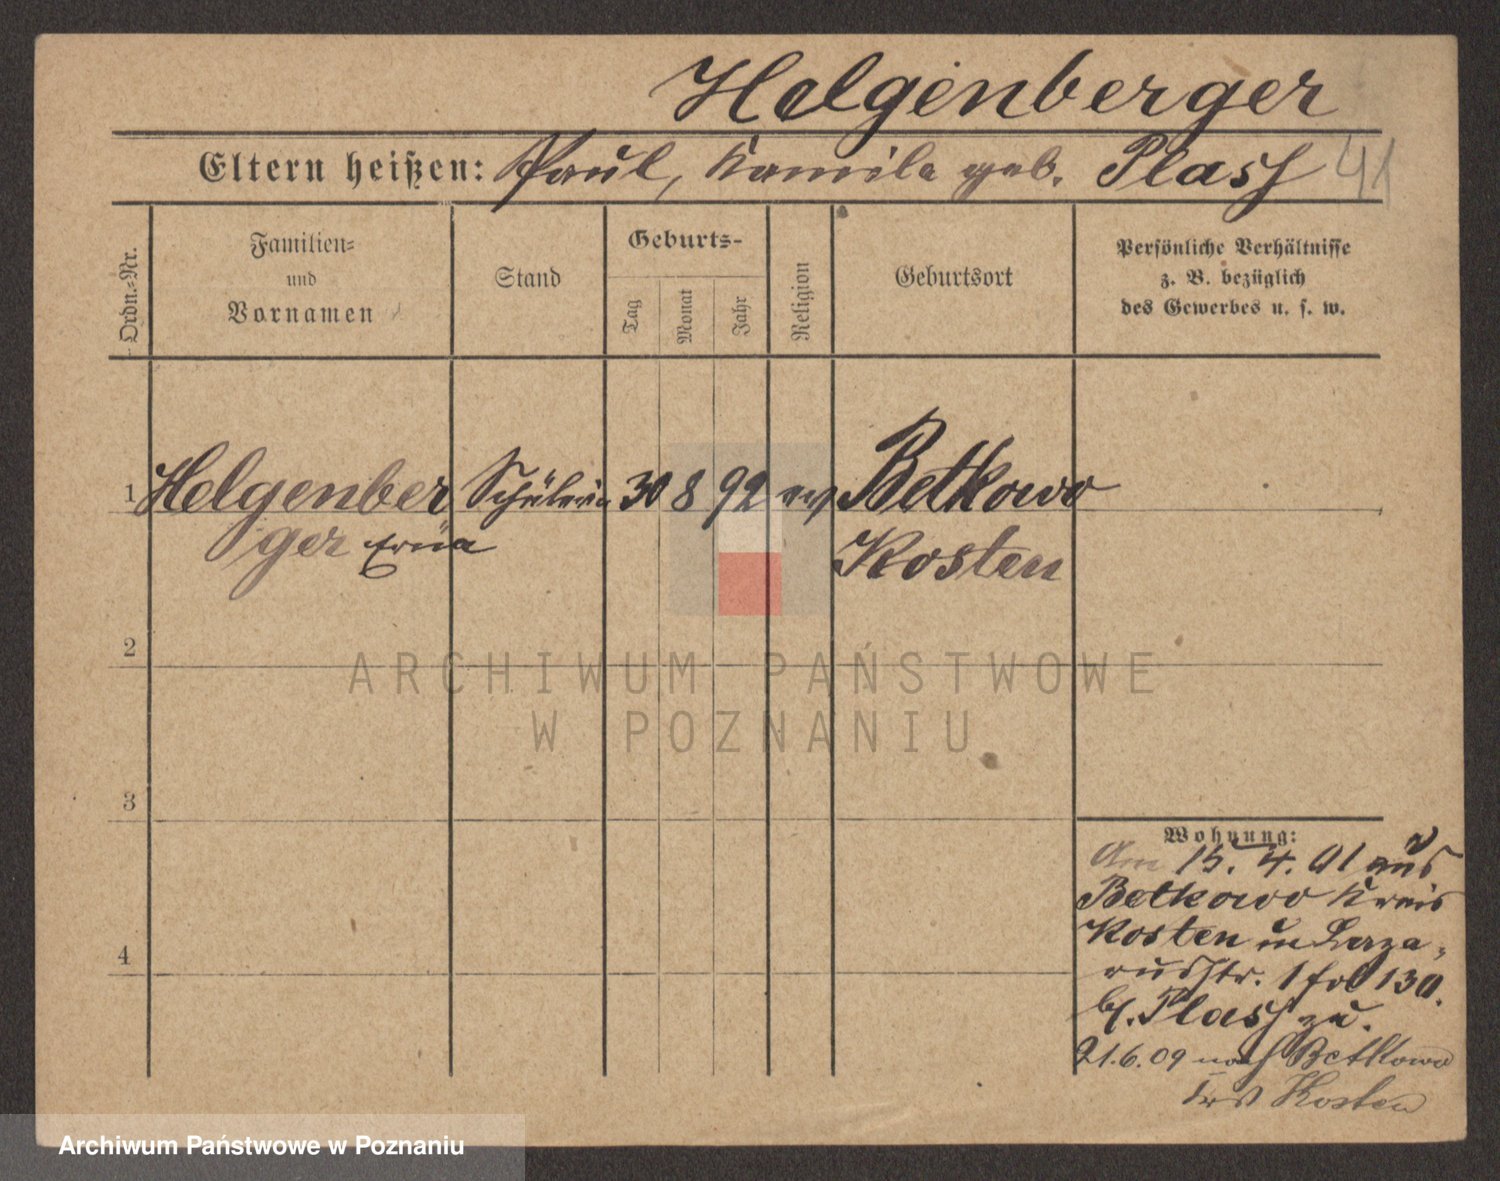 Helgenberger
Eltern heißen: Paul, Kamila geb. Plass 41
Ordn.=Nr.
Familien= und Vornamen
Stand
Geburts-
Tag
Monat
Jahr
Religion
Geburtsort
Persönliche Verhältnisse
z. B. bezüglich
des Gewerbes u. s. w.
1 Helgenber Schülerin 30 8 92 ev Betkowo
ger Erna Kosten
2
ARCHIWUM PAŃSTWOWE
W POZNANIU
3
Wohnung:
Am 15. 4. 01 aus
Betkowo Kreis
Kosten in Laza-
russtr. 1 fol 130.
b/. Plass zu.
21.6.09 nach Betkowo
Krs Kosten
4
Archiwum Państwowe w Poznaniu